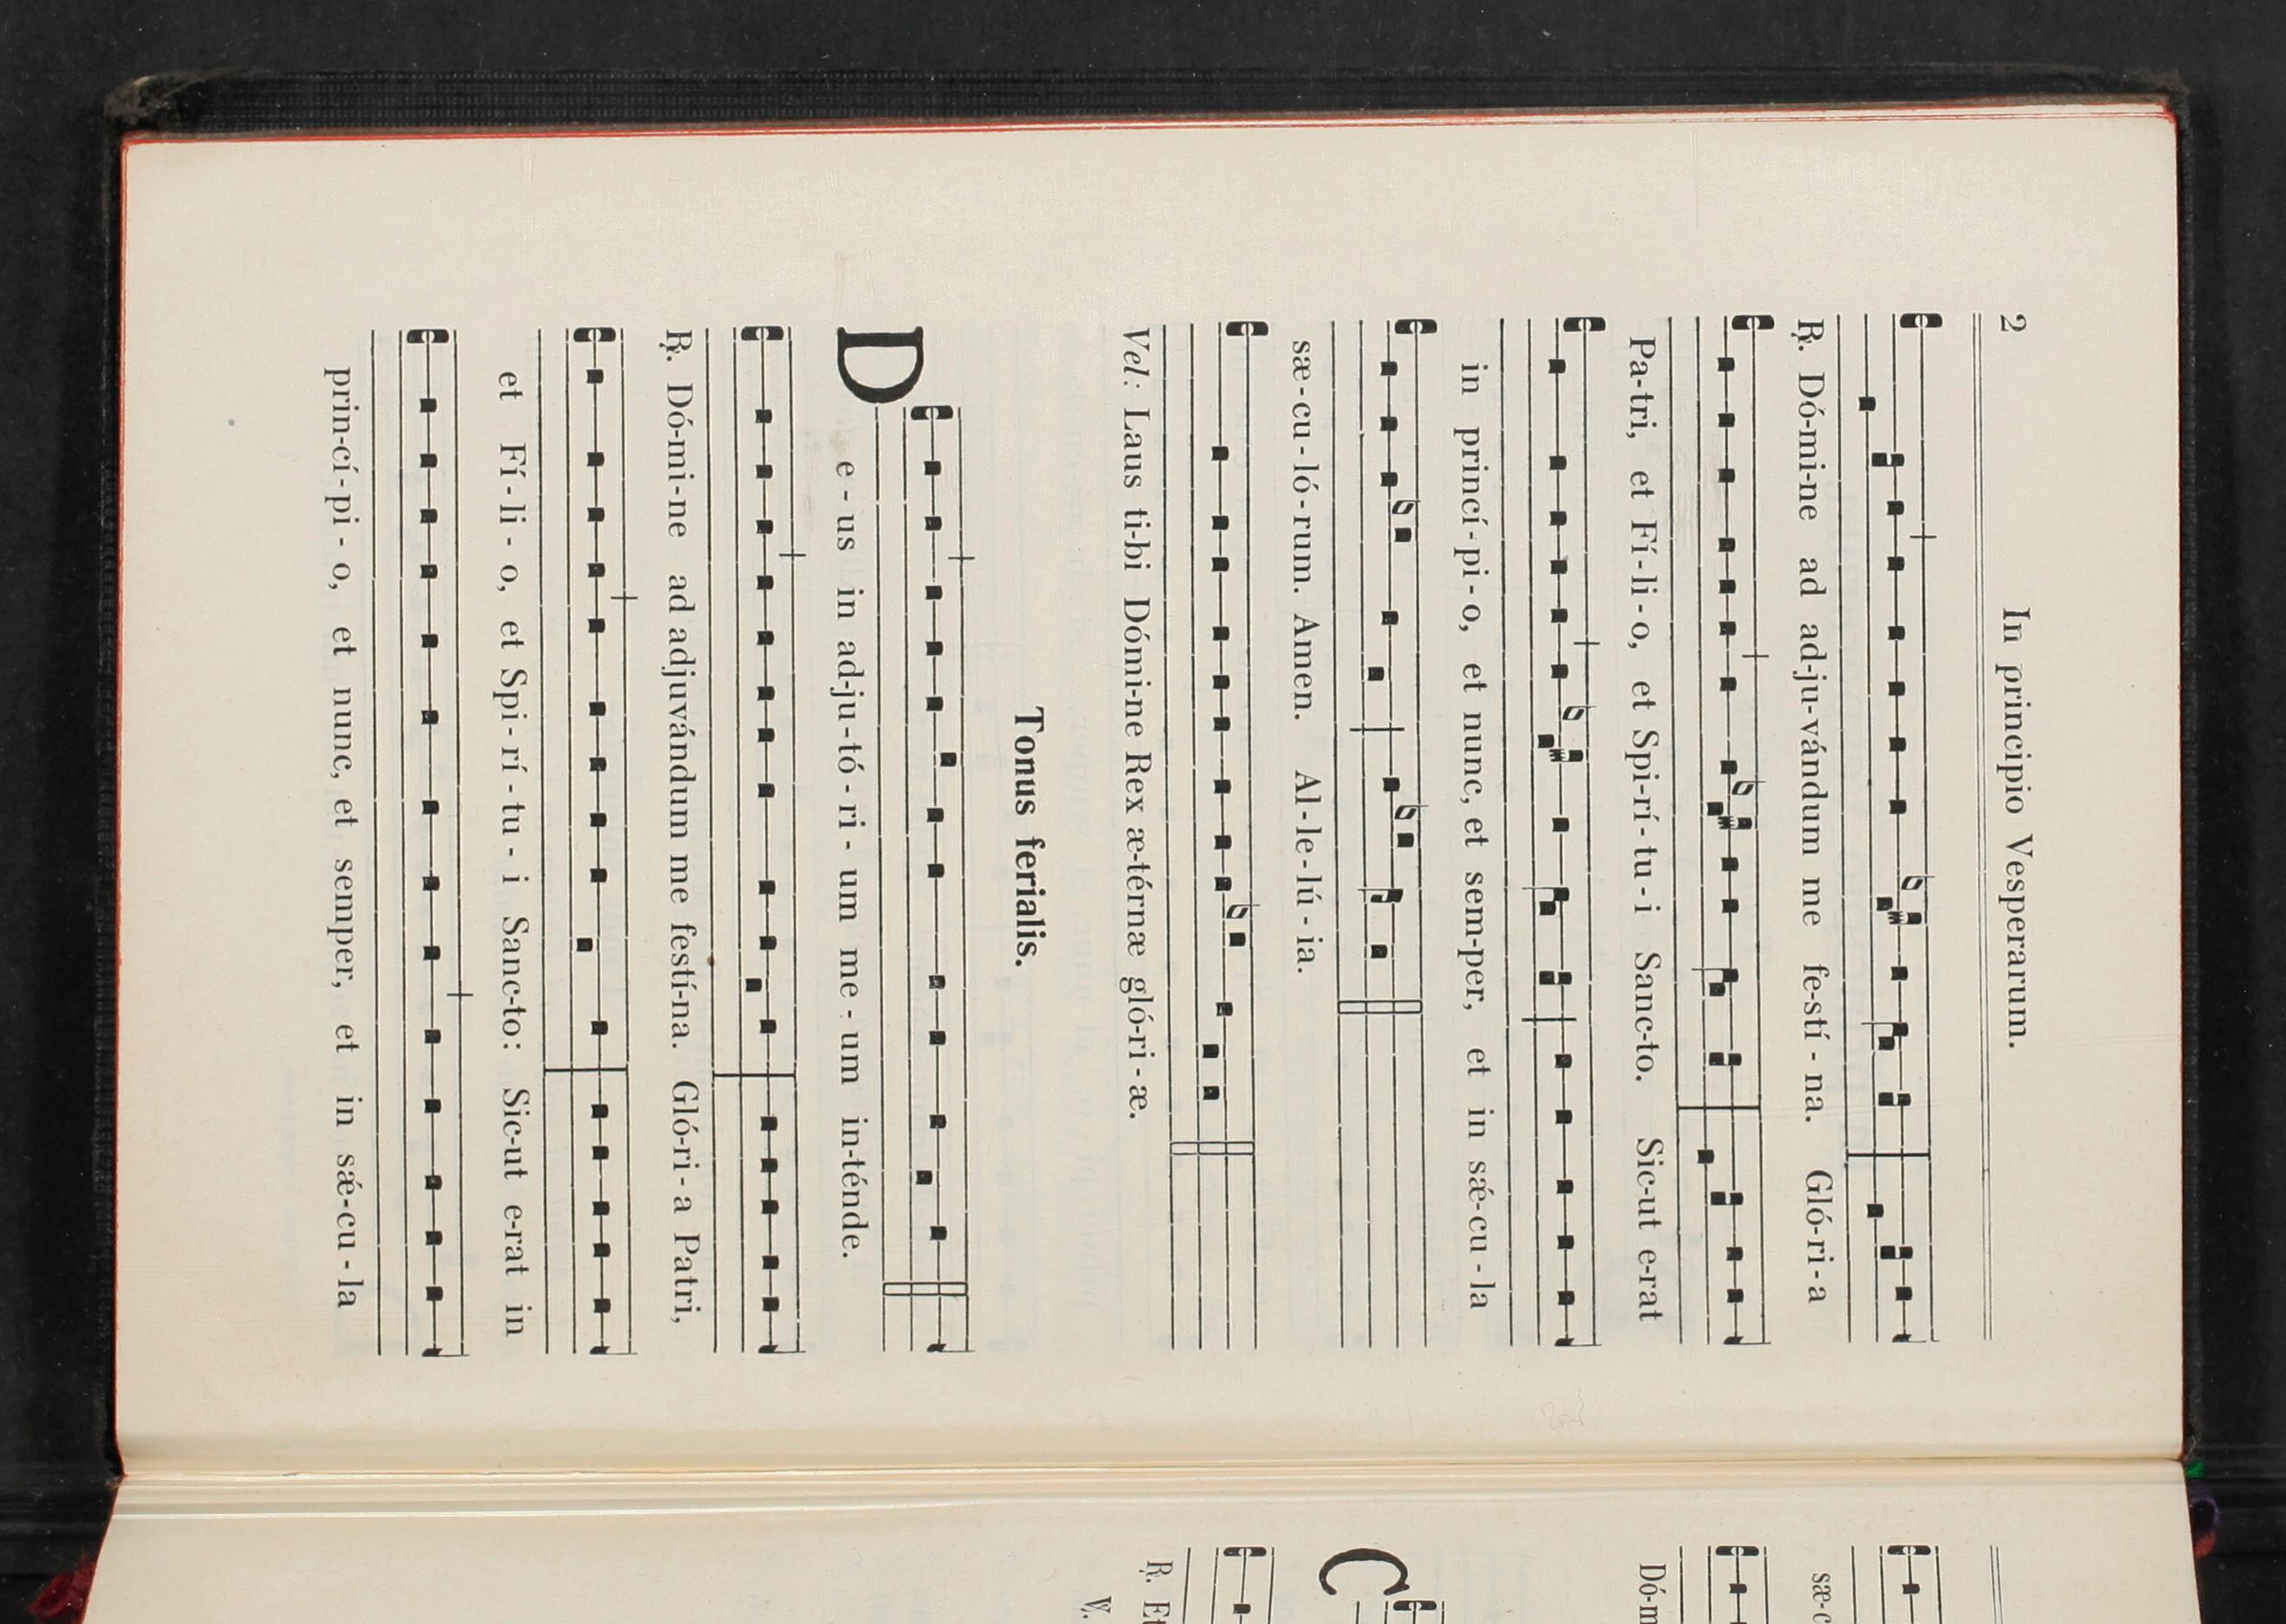 2
In principio Vesperarum.
℟. Dó-mi-ne ad ad-ju-vándum me fe-stí - na. Gló-ri - a
Pa-tri, et Fí - li - o, et Spi-rí - tu - i Sanc-to. Sic-ut e-rat
in princí - pi - o, et nunc, et sem-per, et in sǽ-cu - la
sæ - cu - ló - rum. Amen. Al - le - lú - ia.
Vel: Laus ti-bi Dómi-ne Rex æ-térnæ gló-ri - æ.
Tonus ferialis.
D e - us in ad-ju - tó - ri - um me - um in-ténde.
℟. Dó-mi-ne ad adjuvándum me festí-na. Gló-ri - a Patri,
et Fí - li - o, et Spi - rí - tu - i Sanc-to: Sic-ut e-rat in
prin-cí - pi - o, et nunc, et semper, et in sǽ-cu - la
sæ-c
Dó-m
C
℟. Et
℣.